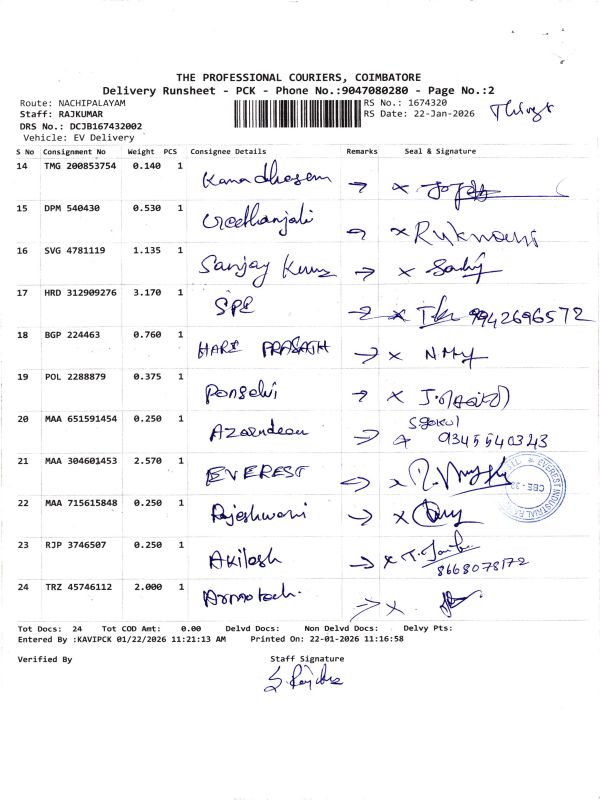 THE PROFESSIONAL COURIERS, COIMBATORE
Delivery Runsheet - PCK - Phone No.:9047080280 - Page No.:2
Route: NACHIPALAYAM
RS No.: 1674320
Staff: RAJKUMAR
RS Date: 22-Jan-2026
DRS No.: DCJB167432002
Vehicle: EV Delivery
S No Consignment No Weight PCS Consignee Details Remarks Seal & Signature
14 TMG 200853754 0.140 1
15 DPM 540430 0.530 1 Geethanjali
16 SVG 4781119 1.135 1 Sanjay
17 HRD 312909276 3.170 1 SPE 9942696572
18 BGP 224463 0.760 1 HARI PRASATH
19 POL 2288879 0.375 1 Ponselvi
20 MAA 651591454 0.250 1 9345540343
21 MAA 304601453 2.570 1 EVEREST
22 MAA 715615848 0.250 1 Rajeshwari
23 RJP 3746507 0.250 1 Akilash 8668078172
24 TRZ 45746112 2.000 1
Tot Docs: 24 Tot COD Amt: 0.00 Delvd Docs: Non Delvd Docs: Delvy Pts:
Entered By :KAVIPCK 01/22/2026 11:21:13 AM Printed On: 22-01-2026 11:16:58
Verified By Staff Signature